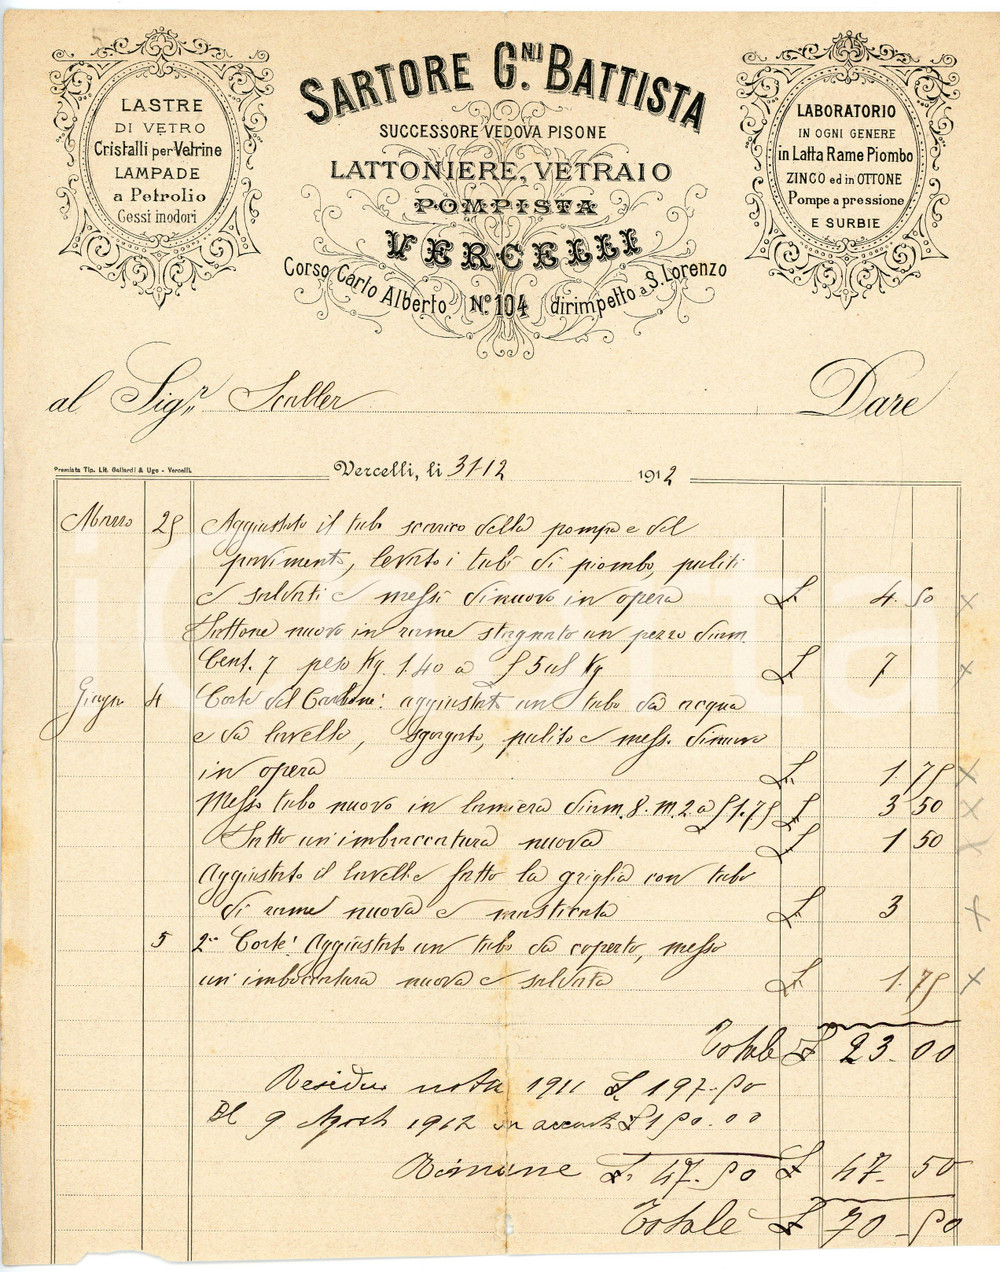 SARTORE G.NI BATTISTA
SUCCESSORE VEDOVA PISONE
LATTONIERE, VETRAIO
POMPISTA
VERCELLI
Corso Carlo Alberto No. 104 dirimpetto a S. Lorenzo
LASTRE
DI VETRO
Cristalli per Vetrine
LAMPADE
a Petrolio
Gessi inodori
LABORATORIO
IN OGNI GENERE
in Latta Rame Piombo
ZINCO ed in OTTONE
Pompe a pressione
E SURBIE
al Sigr. Scaller Dare
Premiata Tip. Lit. Gallardi & Ugo - Vercelli.
Vercelli, li 31-12 1912
Marzo 25 Aggiustato il tubo scarico della pompa e del
pavimento, levato i tubi di piombo, puliti
e saldati e messi dinuovo in opera L. 4.50
nuovo in rame stagnato un pezzo diam.
Cent. 7 peso Kg. 1.40 a £ 5 al Kg L. 7
Giugno 4 Corte del Carbone: aggiustato un tubo da acqua
e da lavello, sgorgato, pulito e messo dinuovo
in opera L. 1.75
Messo tubo nuovo in lamiera diam. 8. m. 2 a £ 1.75 L. 3 50
Fatto un'imboccatura nuova L. 1 50
Aggiustato il lavello fatto la griglia con tubo
di rame nuova e masticata L. 3
5 2a Corte: Aggiustato un tubo da coperto, messo
un'imboccatura nuova e saldata L. 1.75
Totale £ 23.00
Residuo nota 1911 £ 197.50
Il 9 Agosto 1912 in acconto £ 150.00
Rimane £. 47.50 £ 47.50
Totale £ 70 50
iCharta